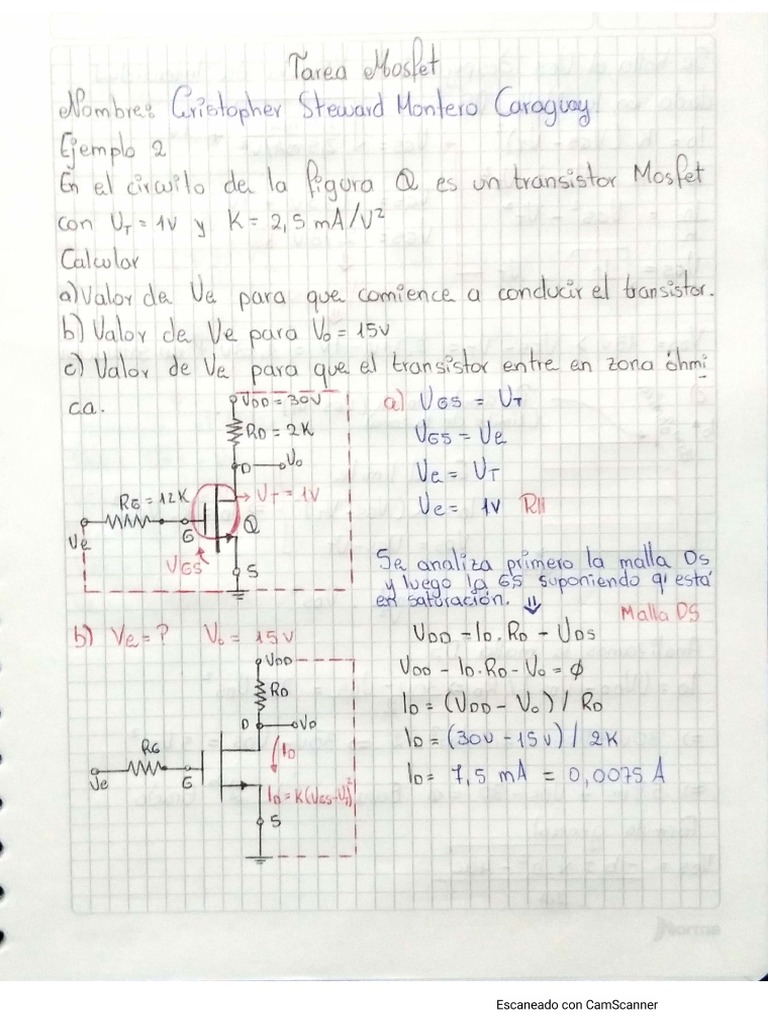 Tarea Mosfet
Nombre: Cristopher Steward Montero Caraguay
Ejemplo 2
En el circuito de la figura Q es un transistor Mosfet
con UT = 1V y K = 2,5 mA/V²
Calcular
a) Valor de Ve para que comience a conducir el transistor.
b) Valor de Ve para Vo = 15V
c) Valor de Ve para que el transistor entre en zona óhmi
ca.
VDD = 30V
RD = 2K
D
Vo
RG = 12K
UT = 1V
Ve
G
Q
VGS
S
a) VGS = UT
VGS = Ve
Ve = UT
Ve = 1V R//
Se analiza primero la malla DS
y luego la GS suponiendo q' está
en saturación. ⇓
Malla DS
b) Ve = ? Vo = 15V
VDD
RD
D
Vo
RG
ID
Ve
G
ID = K(VGS-UT)²
S
VDD = ID.RD - UDS
VDD - ID.RD - Vo = ϕ
ID = (VDD - Vo) / RD
ID = (30V - 15V) / 2K
ID = 7,5 mA = 0,0075 A
Norma
Escaneado con CamScanner